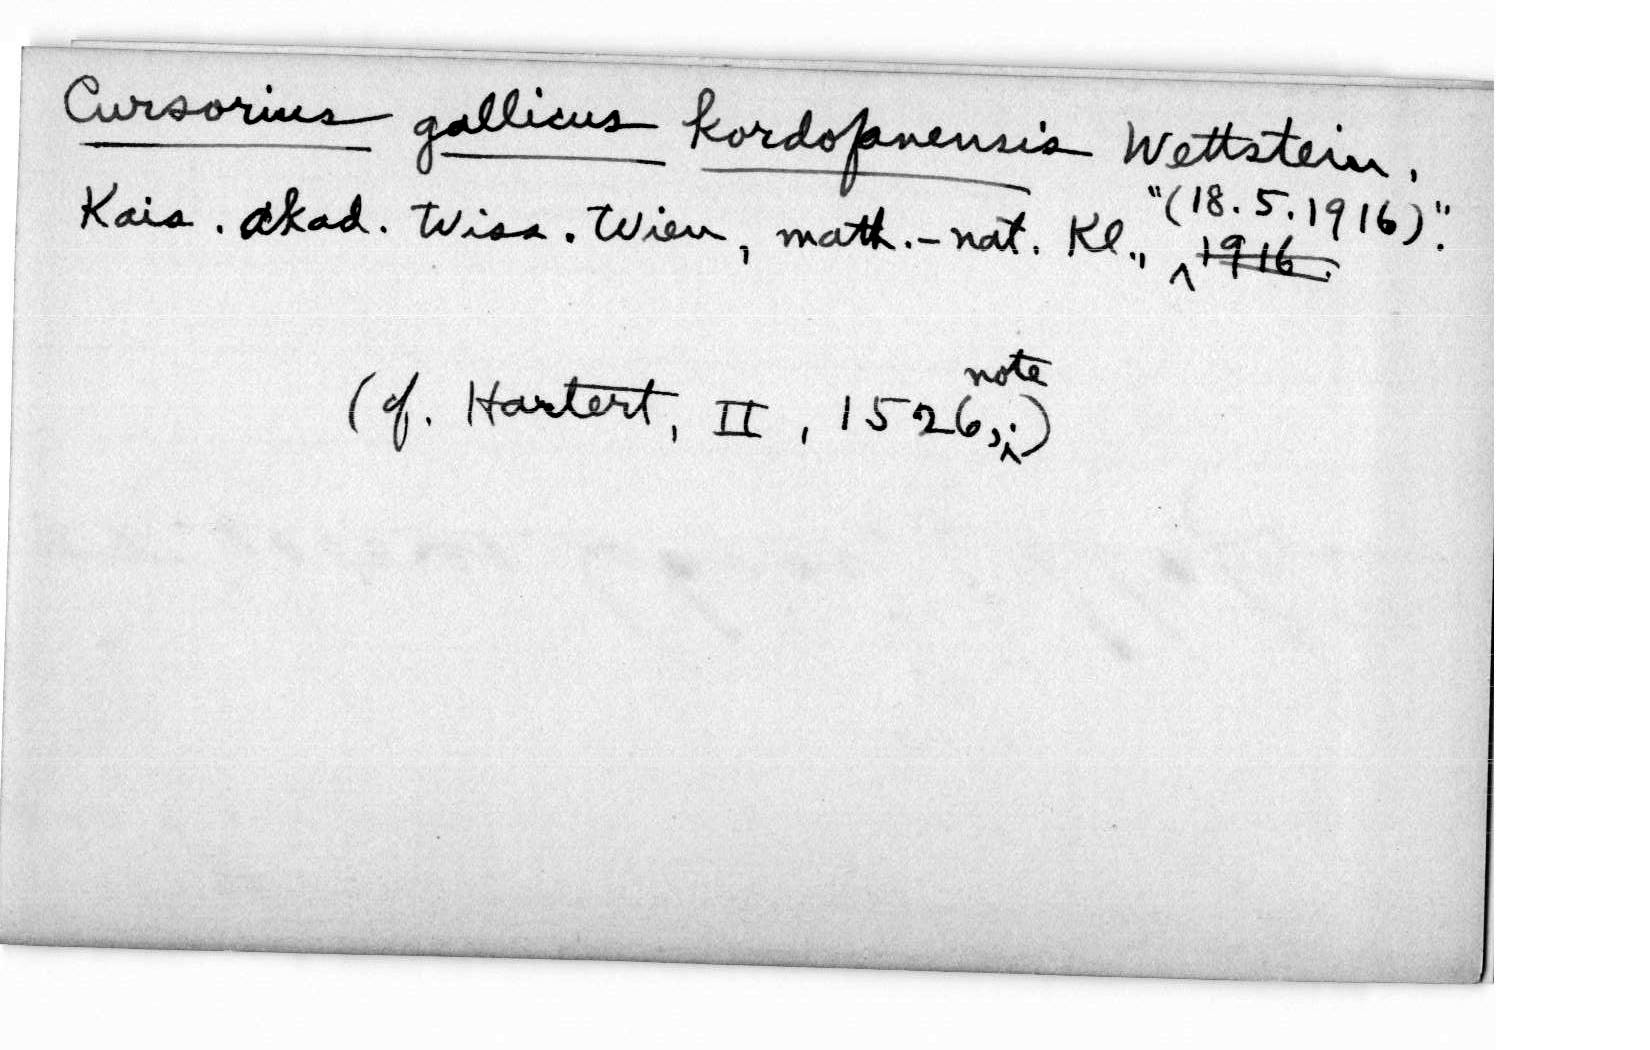 Cursorius gallicus kordofanensis Wettstein,
Kais. Akad. Wiss. Wien, math.-nat. Kl., "(18.5.1916)".
1916.
(cf. Hartert, II, 1526, note i)